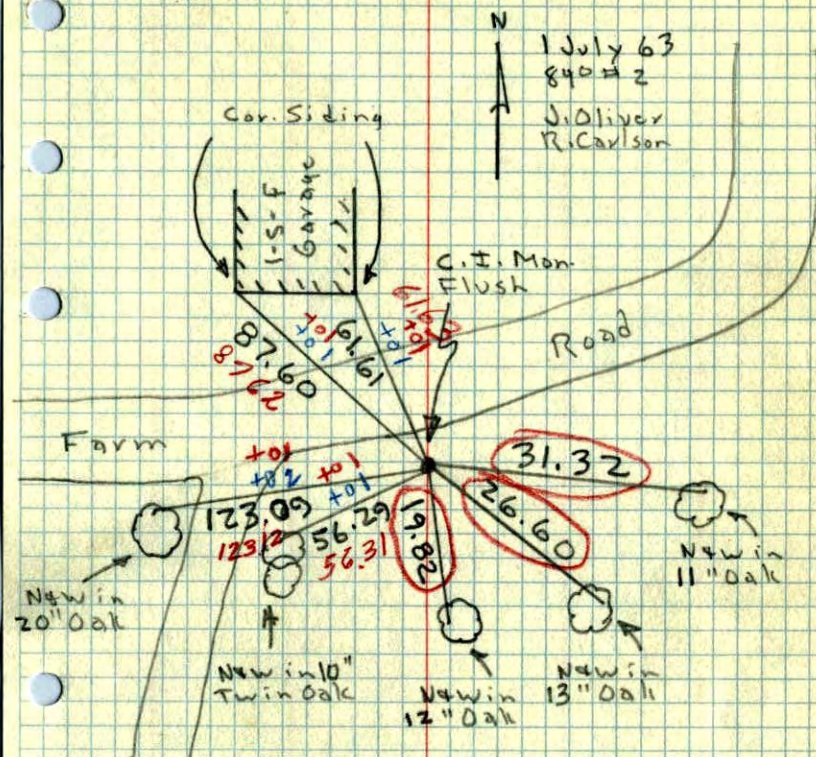 N
1 July 63
840 # 2
J. Oliver
R. Carlson
Cor. Siding
1-S-F
Garage
C.I. Mon.
Flush
Road
Farm
87.60
+01
+01
8762
61.61
+01
+01
31.32
26.60
19.82
123.09
+01
+02
12312
56.29
+01
+01
56.31
N&W in
20" Oak
N&W in 10"
Twin Oak
N&W in
12" Oak
N&W in
13" Oak
N&W in
11" Oak